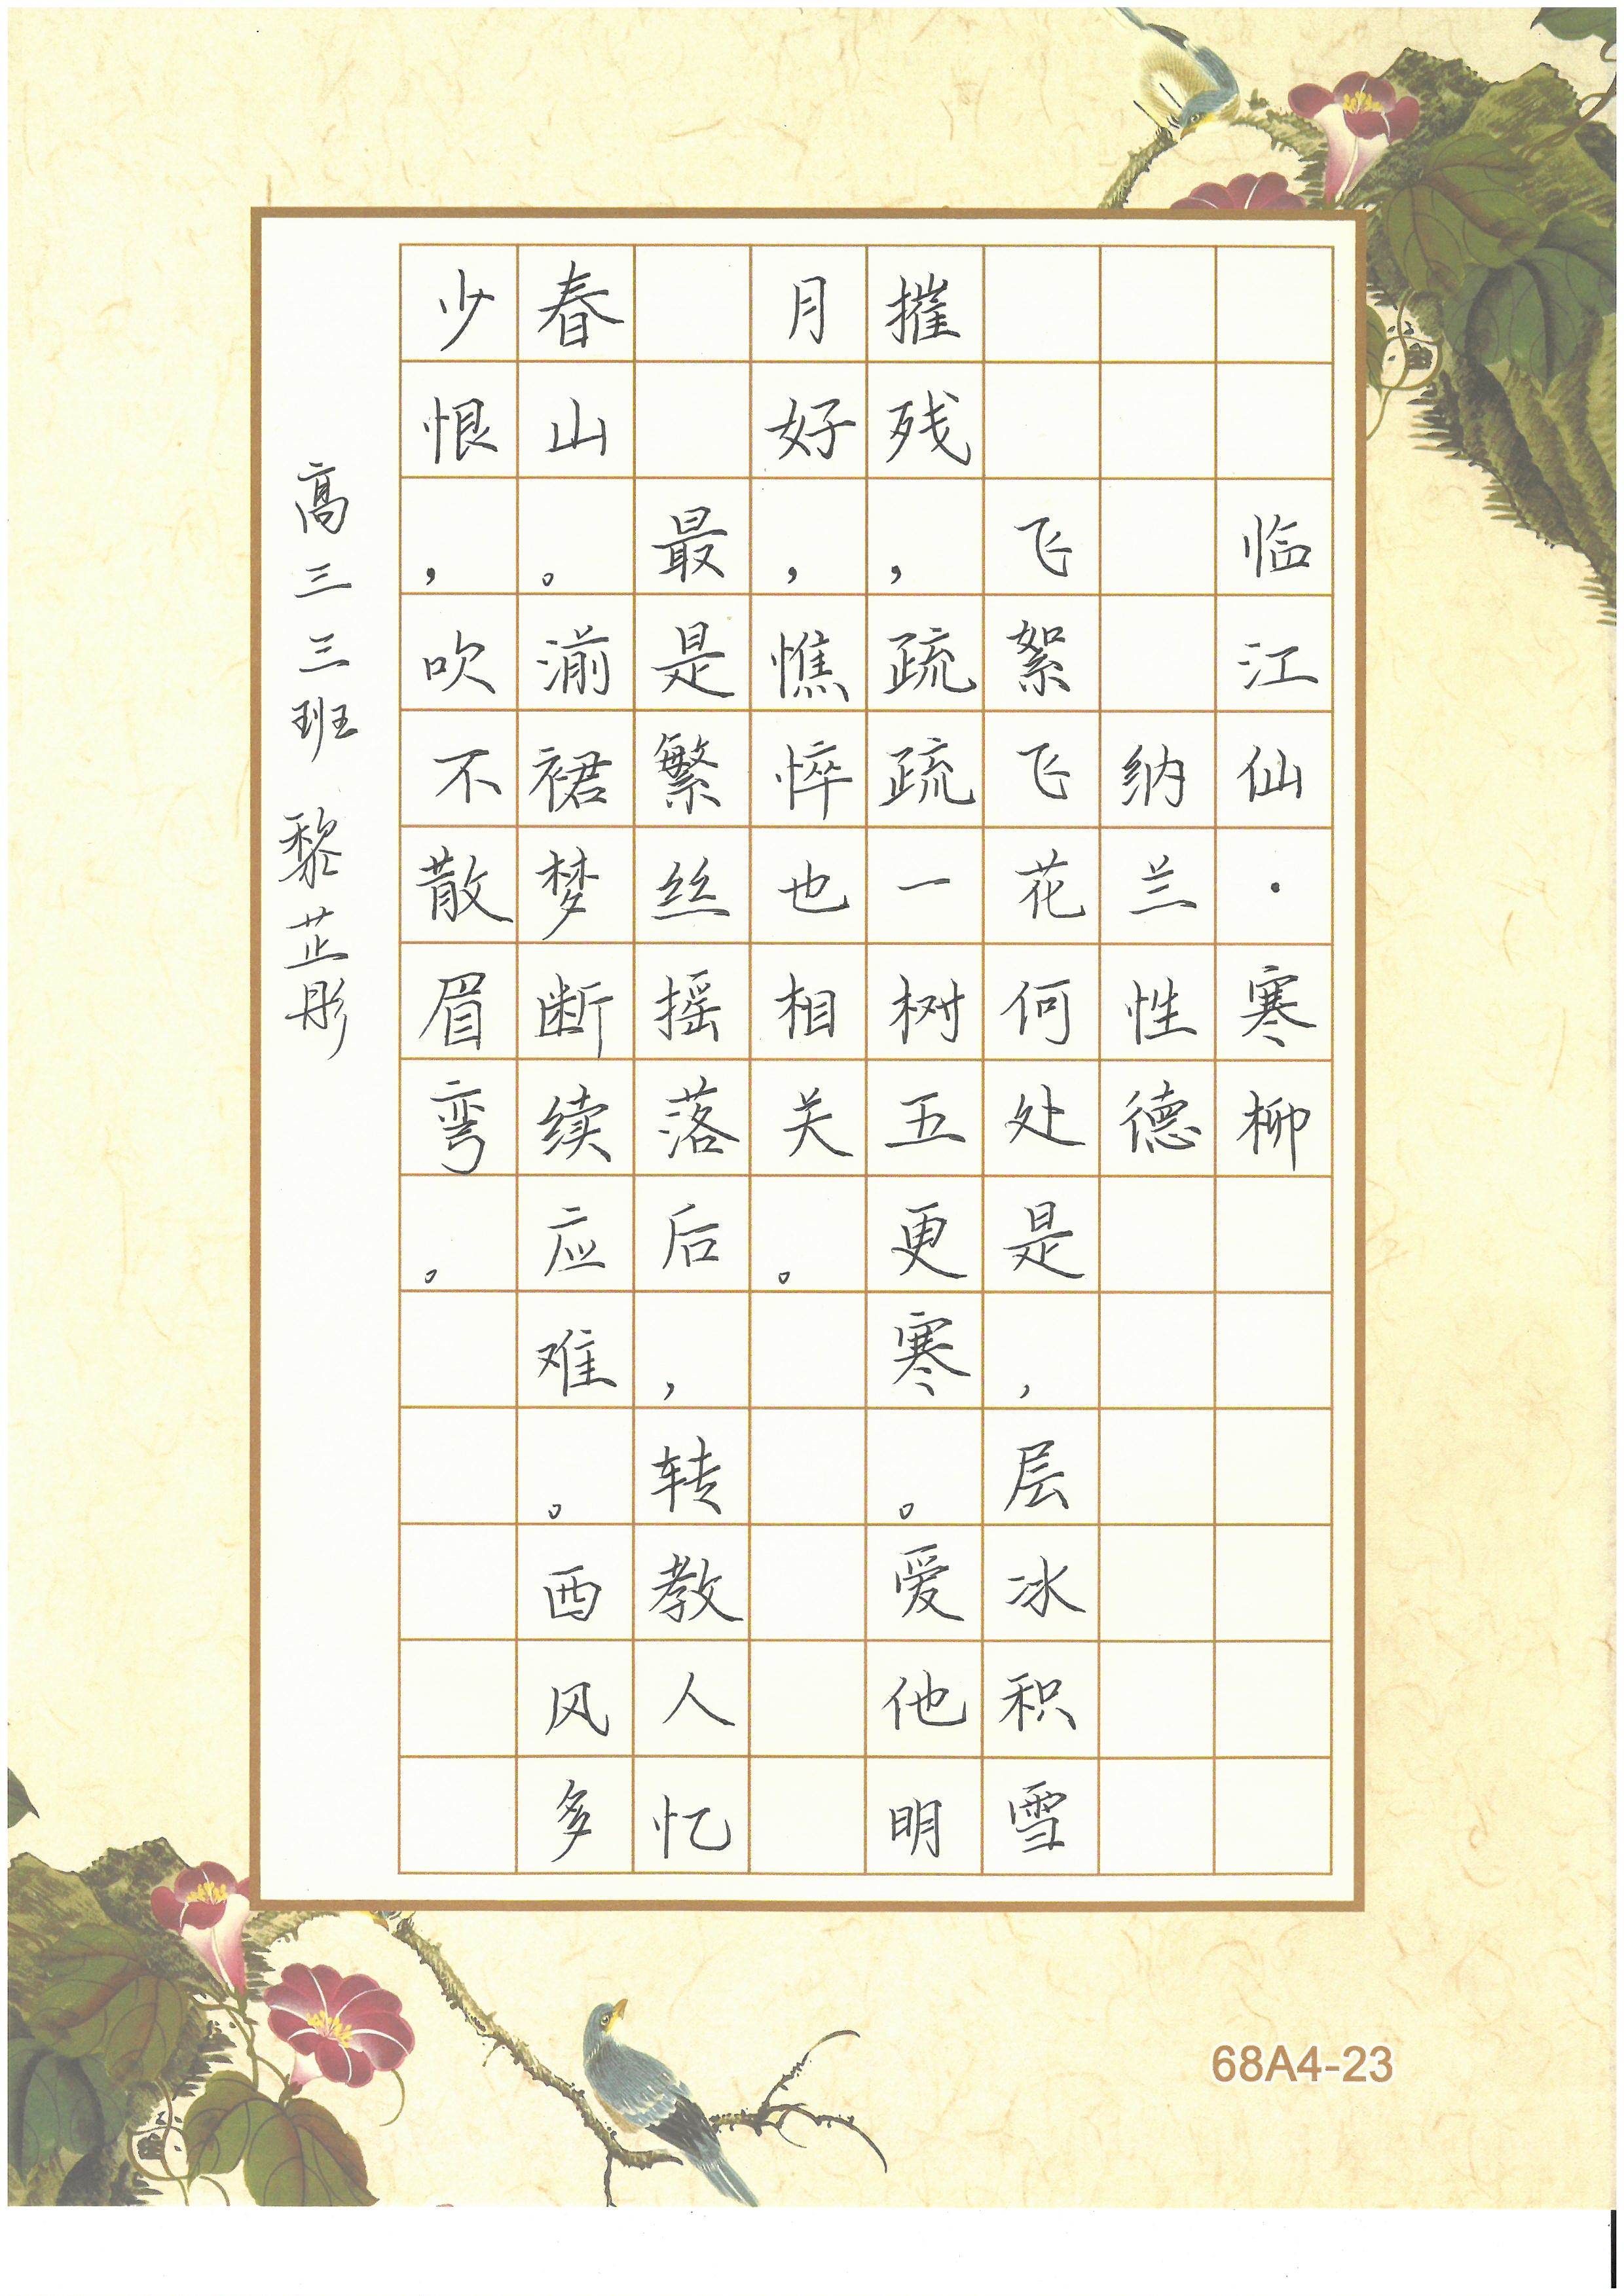 临江仙·寒柳
纳兰性德
飞絮飞花何处是，层冰积雪
摧残，疏疏一树五更寒。爱他明
月好，憔悴也相关。
最是繁丝摇落后，转教人忆
春山。湔裙梦断续应难。西风多
少恨，吹不散眉弯。
高三三班 黎芷彤
68A4-23